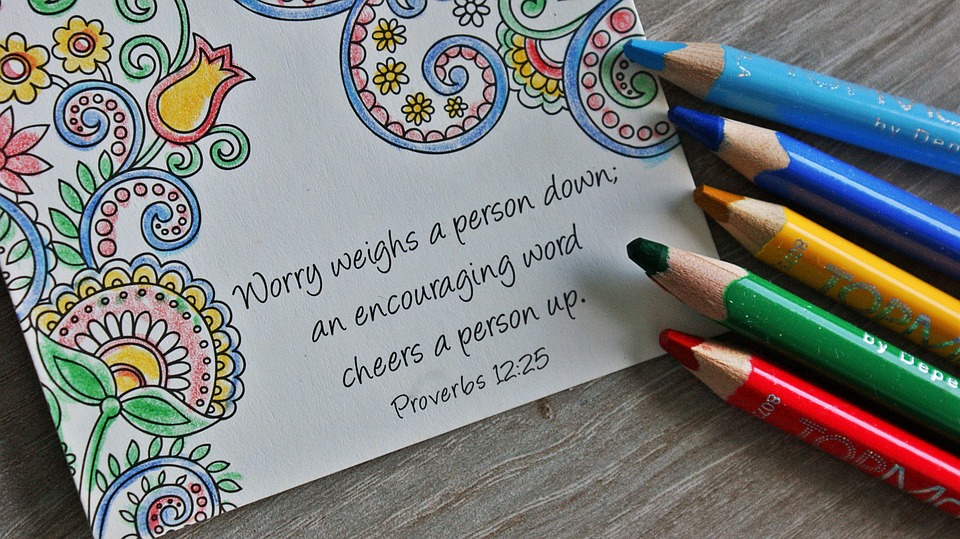 Worry weighs a person down;
an encouraging word
cheers a person up.
Proverbs 12:25
by Dem
TOPM
by Depe
807
TOPMO